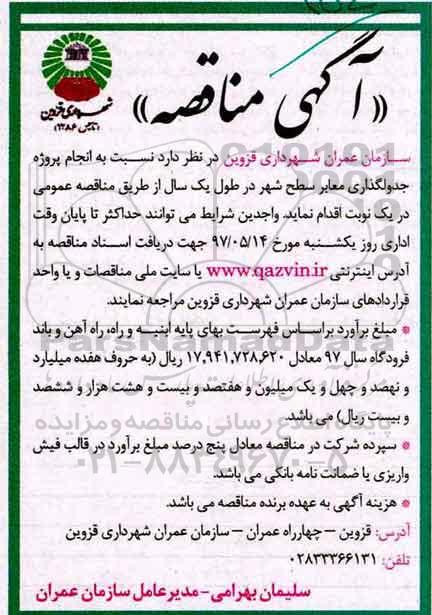 «آگهی مناقصه»
شهرداری قزوین
(تاسیس ۱۲۸۶)
سازمان عمران شهرداری قزوین در نظر دارد نسبت به انجام پروژه
جدولگذاری معابر سطح شهر در طول یک سال از طریق مناقصه عمومی
در یک نوبت اقدام نماید. واجدین شرایط می توانند حداکثر تا پایان وقت
اداری روز یکشنبه مورخ ۹۷/۰۵/۱۴ جهت دریافت اسناد مناقصه به
آدرس اینترنتی www.qazvin.ir یا سایت ملی مناقصات و یا واحد
قراردادهای سازمان عمران شهرداری قزوین مراجعه نمایند.
* مبلغ برآورد براساس فهرست بهای پایه ابنیه و راه، راه آهن و باند
فرودگاه سال ۹۷ معادل ۱۷,۹۴۱,۷۲۸,۶۲۰ ریال (به حروف هفده میلیارد
و نهصد و چهل و یک میلیون و هفتصد و بیست و هشت هزار و ششصد
و بیست ریال) می باشد.
* سپرده شرکت در مناقصه معادل پنج درصد مبلغ برآورد در قالب فیش
واریزی یا ضمانت نامه بانکی می باشد.
* هزینه آگهی به عهده برنده مناقصه می باشد.
آدرس: قزوین – چهارراه عمران – سازمان عمران شهرداری قزوین
تلفن: ۰۲۸۳۳۳۶۶۱۳۱
سلیمان بهرامی-مدیرعامل سازمان عمران
ParsNamadData
پایگاه اطلاع رسانی مناقصه و مزایده